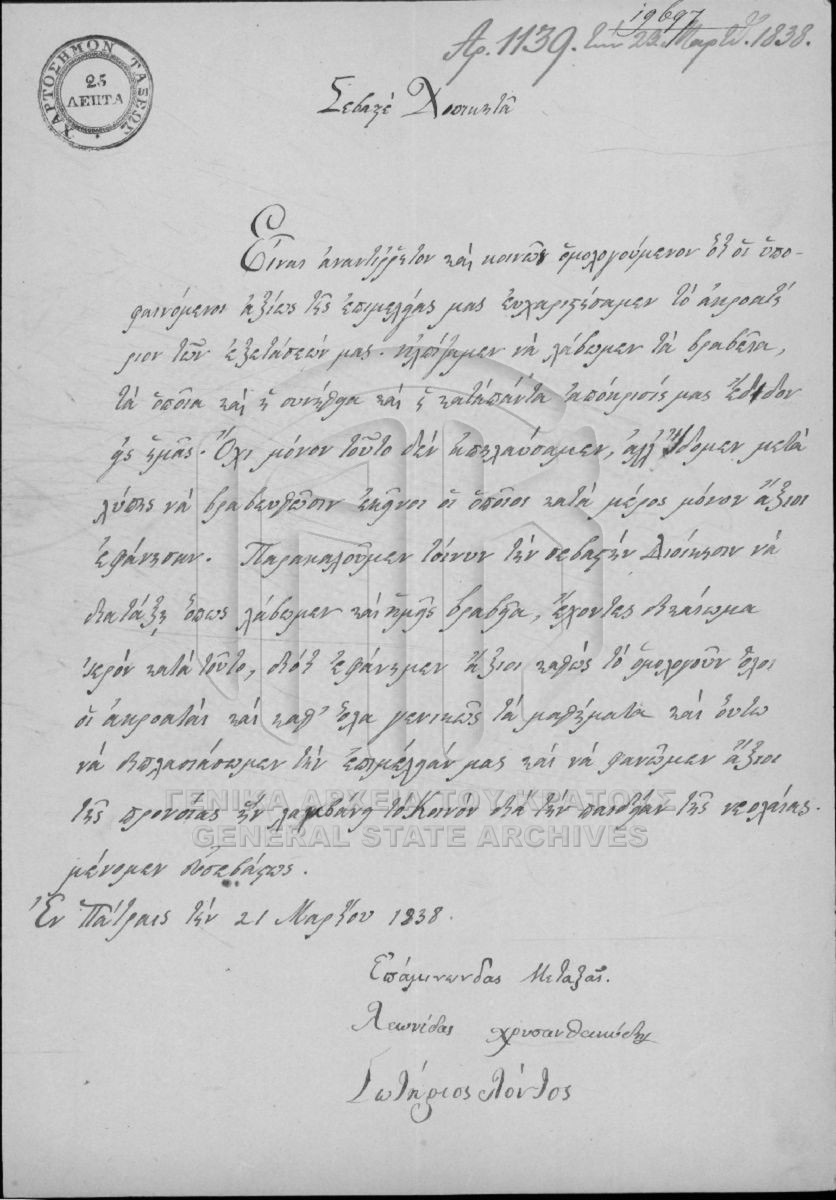 19697
Αρ. 1139. τὴν 23 Μαρτ. 1838.
ΧΑΡΤΟΣΗΜΟΝ ΤΑΞΕΩΣ
25
ΛΕΠΤΑ
Σεβαστὲ Διοικητὰ
Εἶναι ἀναντίῤῥητον καὶ κοινῶς ὁμολογούμενον ὅτι οἱ ὑπο-
φαινόμενοι ἀξίως τῆς ἐπιμελείας μας εὐχαριστήσαμεν τὸ ἀκροατή
ριον τῶν ἐξετάσεών μας. ἠλπίζαμεν νὰ λάβωμεν τὰ βραβεῖα,
τὰ ὁποῖα καὶ ἡ συνήθεια καὶ ἡ κατὰ πάντα ἀπόκρισίς μας ἔδιδον
εἰς ἡμᾶς. Ὄχι μόνον τοῦτο δὲν ἀπηλαύσαμεν, ἀλλ' εἴδομεν μετὰ
λύπης νὰ βραβευθῶσιν ἐκεῖνοι οἱ ὁποῖοι κατὰ μέρος μόνον ἄξιοι
ἐφάνησαν. Παρακαλοῦμεν τοίνυν τὴν σεβαστὴν Διοίκησιν νὰ
διατάξῃ ὅπως λάβωμεν καὶ ἡμεῖς βραβεῖα, ἔχοντες δικαίωμα
ἱερὸν κατὰ τοῦτο, διότι ἐφάνημεν ἄξιοι καθὼς τὸ ὁμολογοῦν ὅλοι
οἱ ἀκροαταὶ καὶ καθ' ὅλα γενικῶς τὰ μαθήματα καὶ οὕτω
νὰ διπλασιάσωμεν τὴν ἐπιμέλειάν μας καὶ νὰ φανῶμεν ἄξιοι
τῆς προνοίας ἣν λαμβάνει τὸ Κοινὸν διὰ τὴν παιδείαν τῆς νεολαίας.
μένομεν εὐσεβάστως.
Ἐν Πάτραις τὴν 21 Μαρτίου 1838.
Ἐπαμινώνδας Μεταξᾶς.
Λεωνίδας Χρυσανθακόπης
Σωτήριος Λόντος
ΓΕΝΙΚΑ ΑΡΧΕΙΑ ΤΟΥ ΚΡΑΤΟΥΣ
GENERAL STATE ARCHIVES